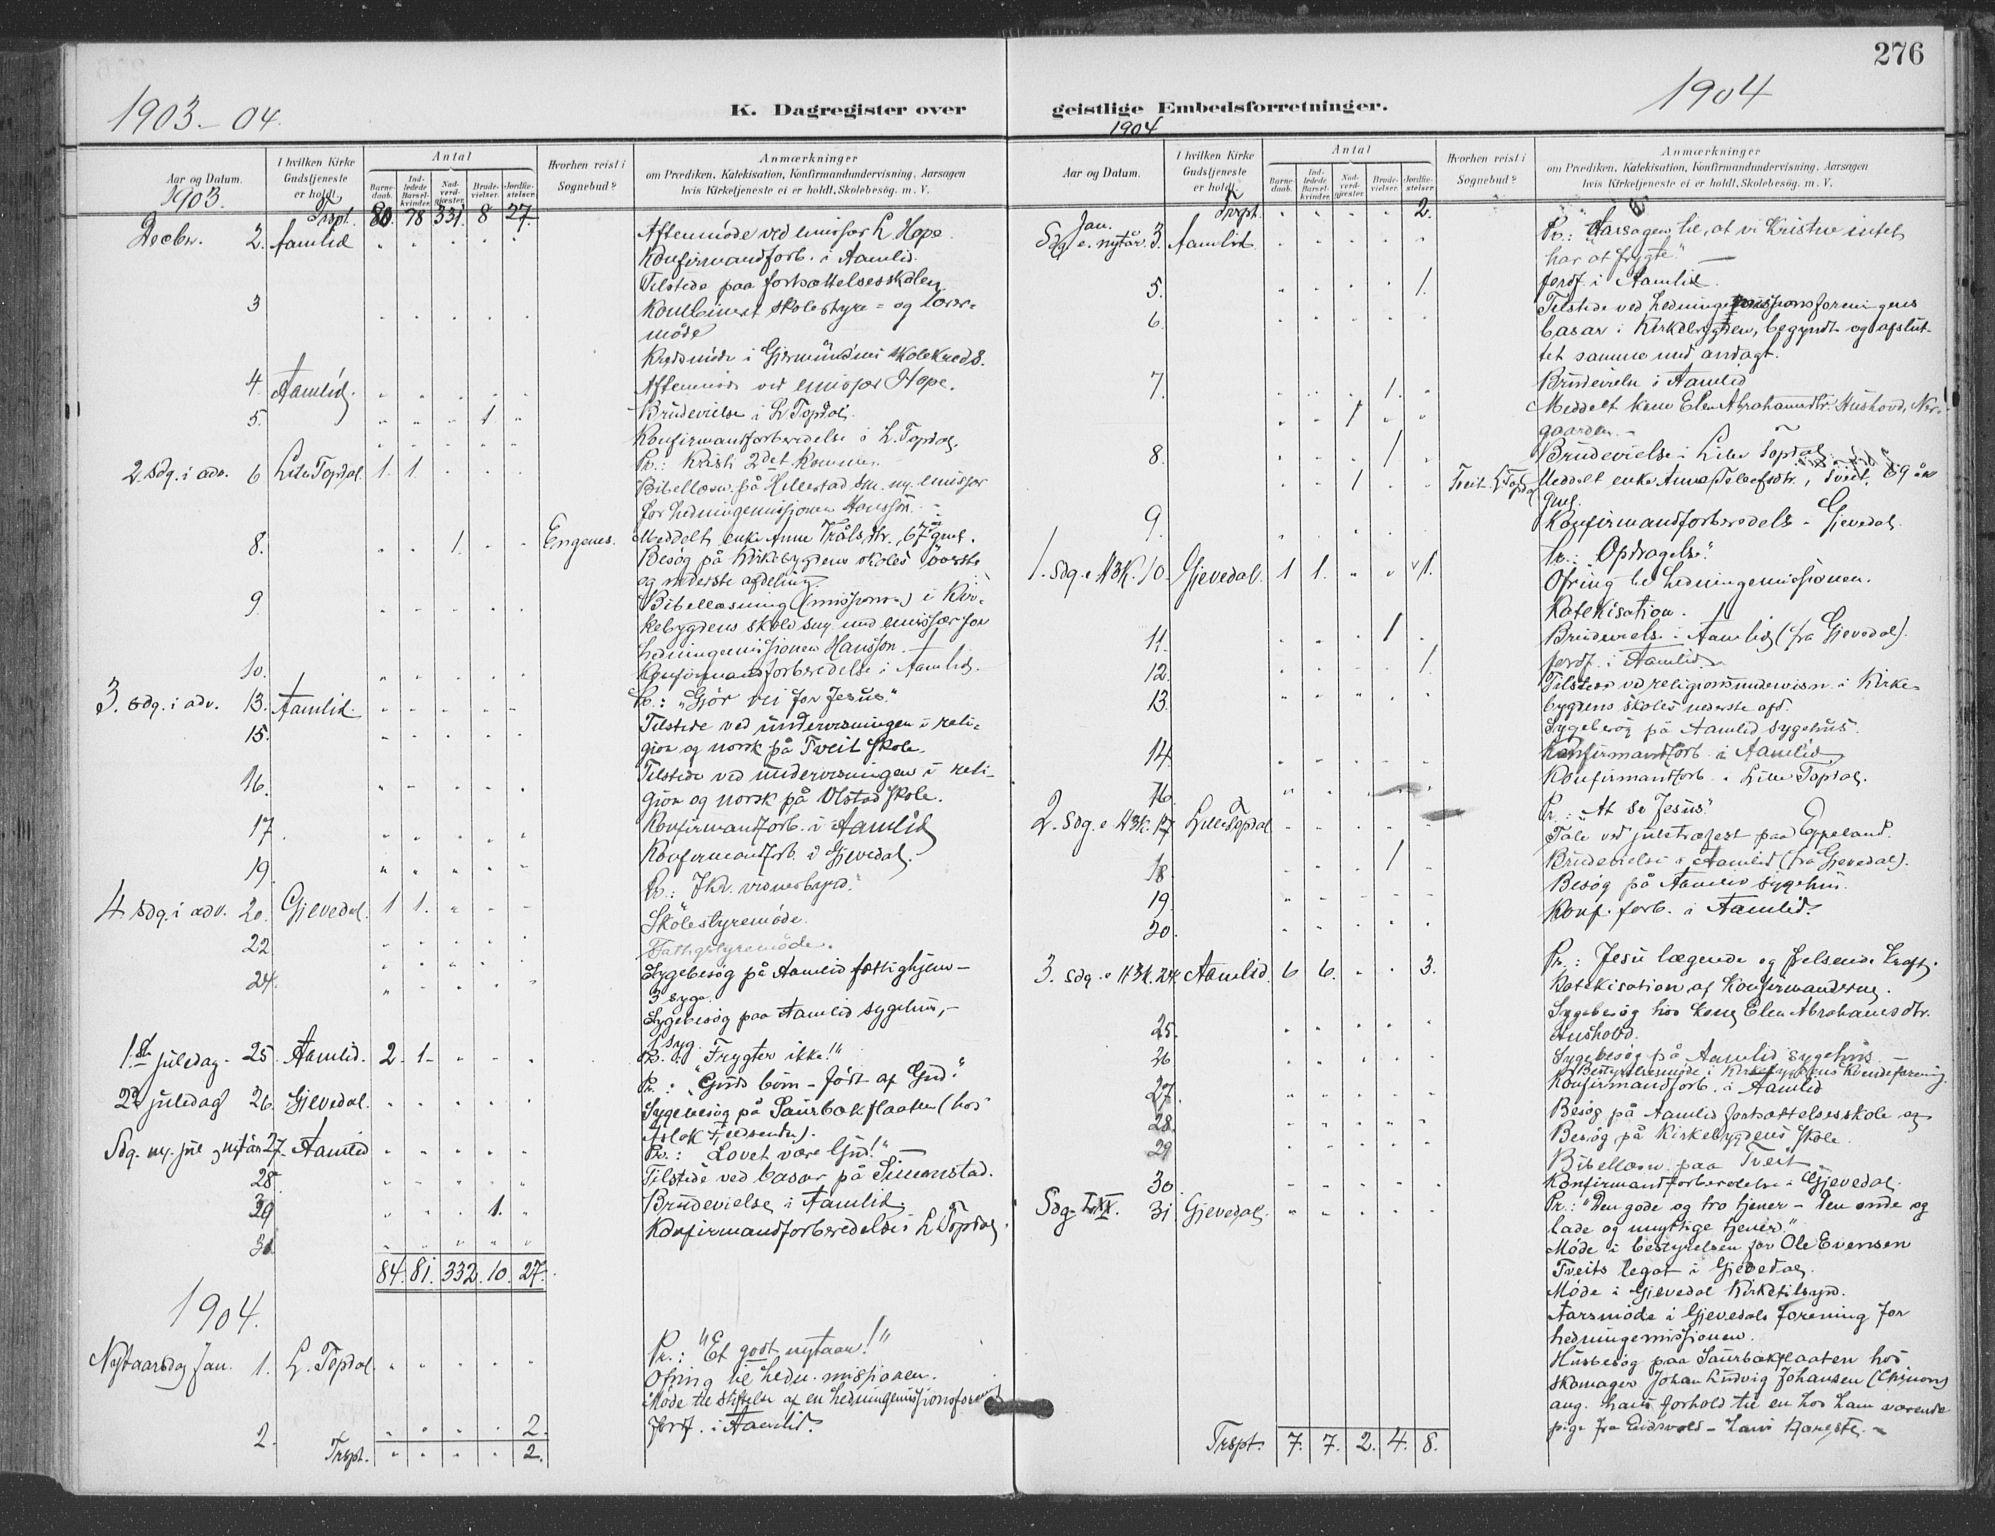 276
1903-04.
K. Dagregister over
geistlige Embedsforretninger.
1904
1904
Aar og Datum.
I hvilken Kirke Gudstjeneste er holdt.
Antal
Barnedaab.
Indledede Barselkvinder.
Nadverdgjæster.
Brudevielser.
Jordfæstelser.
Hvorhen reist i Sognebud?
Anmærkninger
om Prædiken, Katekisation, Konfirmandundervisning, Aarsagen
hvis Kirketjeneste ei er holdt, Skolebesøg. m. V.
1903.
Trspt. 80. 78 331. 8 27.
Decbr. 2. Aamlid
Aftenmøde ved emissær L. Hope.
Konfirmandforb. i Aamlid.
Tilstede paa fortsættelsesskolen.
3
Kombineret skolestyre- og lærermøde
4. Aamlid.
Aftenmøde ved emissær Hope.
5. 1.
Brudevielse i L. Topdal.
Konfirmandforberedelse i L. Topdal.
2. Sdg. i adv. 6 Lille Topdal. 1. 1.
Pr.: Kristi 2det komme.
for hedningemissionen Hansson.
8. 1. Engenes.
Besøg på Kirkebygdens skoles øverste
og nederste afdeling.
9
Bibellæsning (missions-) i Kirkebygdens
hedningemissionen Hansson.
10.
Konfirmandforberedelse i Aamlid.
3. Sdg. i adv. 13. Aamlid.
15.
Tilstede ved undervisningen i religion
og norsk på Tveit skole.
16.
Tilstede ved undervisningen i religion
og norsk på Olstad skole.
17
Konfirmandforb. i Aamlid
19.
Konfirmandforb. i Gjevedal.
4 Sdg. i adv. 20. Gjevedal. 1 1.
22
Skolestyremøde.
Fattigstyremøde.
24.
Sygebesøg på Aamlid fattighjem -
3 syge.
Sygebesøg paa Aamlid sygehus, -
1 syg.
1.ste juledag. 25. Aamlid. 2. 1.
Pr.: "Frygter ikke!"
2den juledag 26. Gjevedal.
Pr.: "Guds børn - født af Gud."
Sygebesøg på Saurbækflaaten (hos
Sdg. m. jul og nytår 27. Aamlid
Pr.: Lovet være Gud!"
28.
Tilstede ved basar på Simonstad.
29 1.
Brudevielse i Aamlid.
30.
Konfirmandforberedelse i L. Topdal.
84. 81. 332. 10. 27.
1904.
Nytaarsdag Jan. 1. L. Topdal.
Pr.: "Et godt nytaar!"
Ofring til hedn. missionen.
Møde til stiftelse af en hedningemissionsforening
2. 2.
Jordf. i Aamlid.
Trspt. 2.
Aar og Datum.
I hvilken Kirke Gudstjeneste er holdt.
Antal
Barnedaab.
Indledede Barselkvinder.
Nadverdgjæster.
Brudevielser.
Jordfæstelser.
Hvorhen reist i Sognebud?
Anmærkninger
om Prædiken, Katekisation, Konfirmandundervisning, Aarsagen
hvis Kirketjeneste ei er holdt, Skolebesøg. m. V.
Trspt. 2.
Jan.
Sdg e. nytår. 3. Aamlid.
Pr.: "Aarsagen til, at vi kristne intet
har at frygte."
5. 1.
Jordf. i Aamlid.
6.
Tilstede ved hedningemissionsforeningens
basar i Kirkebygden, begyndt og afsluttet
samme med andagt.
7. 1.
Brudevielse i Aamlid
8. 1
Brudevielse i Lille Topdal.
9.
Konfirmandforberedelse - Gjevedal.
1. Sdg. e H3K. 10. Gjevedal. 1 1. 1.
Pr.: "Opdragelse".
Ofring til hedningemissionen.
Katekisation.
11. 1
Brudevielse i Aamlid (fra Gjevedal).
12. 1.
Jordf. i Aamlid.
13.
Tilstede ved religionsundervisn. i Kirkebygdens
skoles nederste afd.
Sygebesøg på Aamlid sygehus.
14
Konfirmandforb. i Aamlid
16.
Konfirmandforb. i Lille Topdal.
2. Sdg. e H3K. 17 Lille Topdal
Pr.: "At se Jesus."
Tale ved juletræfest paa Eppeland.
18. 1
Brudevielse i Aamlid (fra Gjevedal).
19.
Besøg på Aamlid sygehus.
20.
Konf. forb. i Aamlid.
3. Sdg. e H3K. 24. Aamlid. 6 6. 3.
Pr.: Jesu lægende og frelsende kraft.
Katekisation af konfirmanderne.
25.
Sygebesøg hos kone Elen Abrahamsdtr.
26
Sygebesøg på Aamlid sygehus. -
Bestyrelsesmøde i Kirkebygdens kvindeforening.
27.
Konfirmandforb. i Aamlid
28.
Besøg på Aamlid fortsættelsesskole og
29
Besøg på Kirkebygdens skole.
Bibellæsn. paa Tveit.
30.
Konfirmandforberedelse i Gjevedal.
31 Gjevedal.
Pr.: "Den gode og tro tjener - den onde og
lade og unyttige tjener."
Møde i bestyrelsen for Ole Evensen
Tveits legat i Gjevedal.
Møde i Gjevedal kirketilsyn.
Aarsmøde i Gjevedals forening for
hedningemissionen.
Husbesøg paa Saurbækflaaten hos
skomager Johan Ludvig Johansen
ang. hans forhold til en hos ham værende
pige fra Eidsvold -
Trspt. 7. 7. 2. 4. 8.